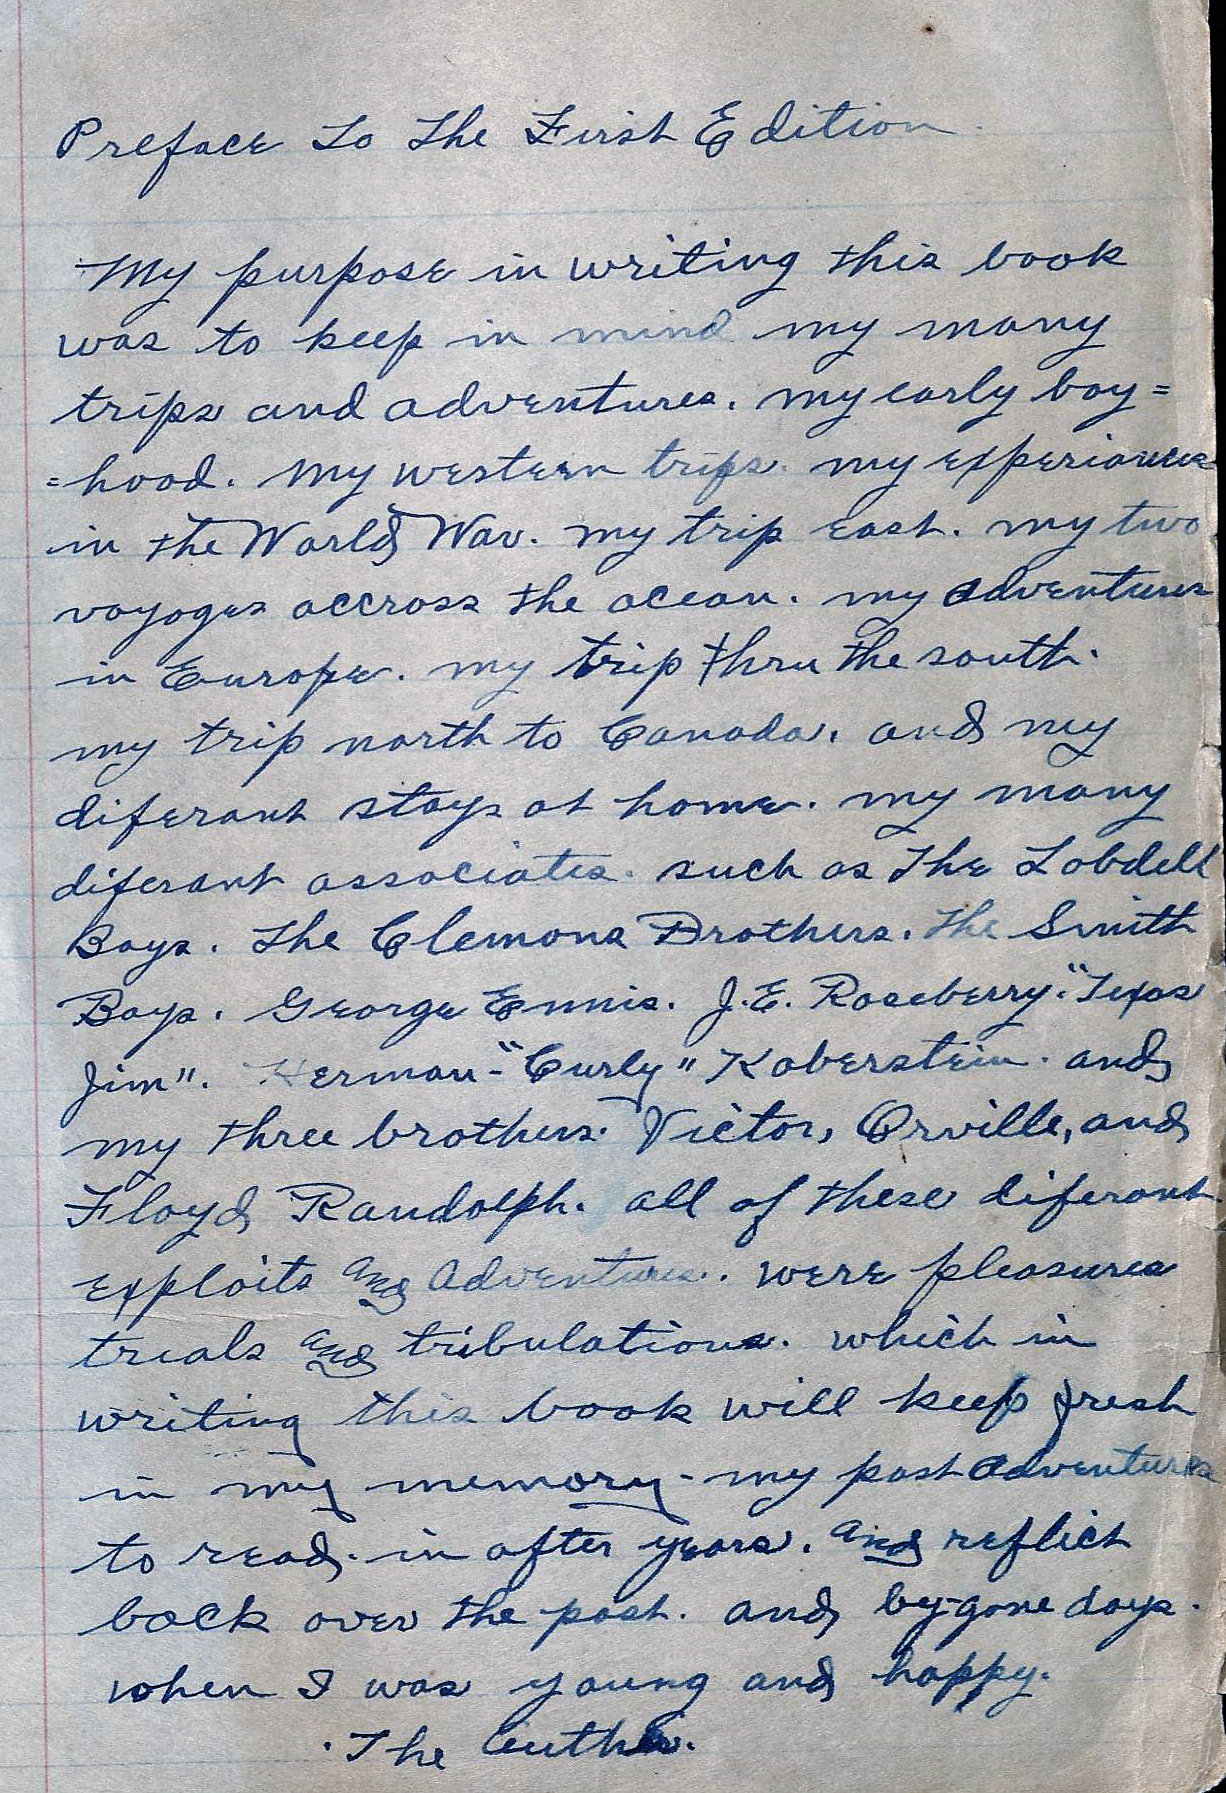 Preface To The First Edition.
My purpose in writing this book
was to keep in mind my many
trips and adventures. my early boy=
=hood. my western trips. my experiances
in the World War. my trip east. my two
voyages accross the ocean. my adventures
in Europe. my trip thru the south.
my trip north to Canada. and my
diferant stays at home. my many
diferant associates. such as The Lobdell
Boys. The Clemons Brothers. The Smith
Boys. George Ennis. J.E. Roseberry. "Texas
Jim". Herman - "Curly" Koberstein. and
my three brothers. Victor, Orville, and
Floyd Randolph. all of these diferant
exploits and adventures. were pleasures
trials and tribulations. which in
writing this book will keep fresh
in my memory - my past adventures
to read. in after years. and reflict
back over the past. and by-gone days.
when I was young and happy.
. The Author.